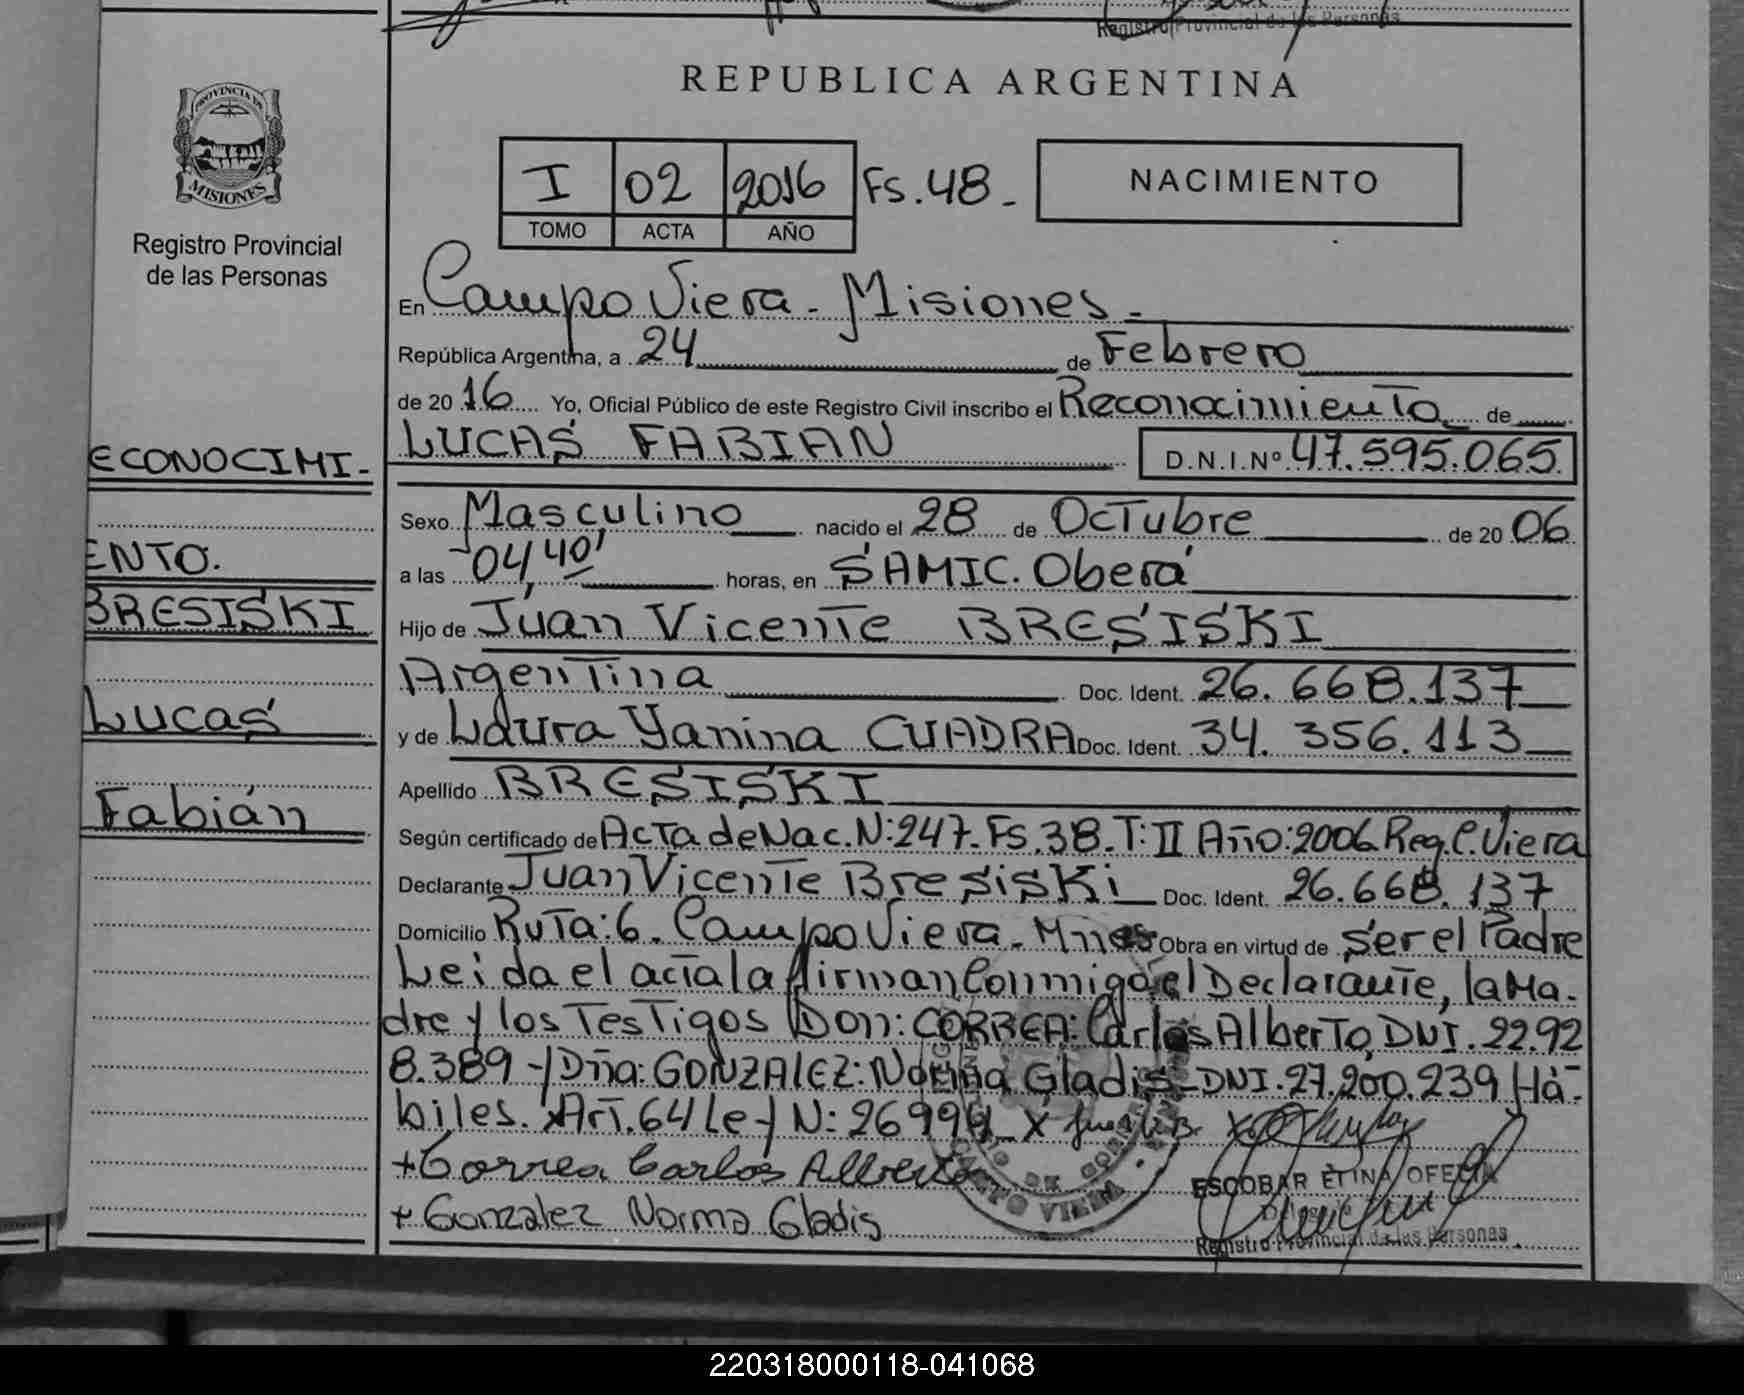 Registro Provincial de las Personas
REPUBLICA ARGENTINA
PROVINCIA DE
MISIONES
Registro Provincial
de las Personas
I 02 2016 Fs. 48.-
TOMO ACTA AÑO
NACIMIENTO
En Campo Viera - Misiones -
República Argentina, a 24 de Febrero
de 2016 Yo, Oficial Público de este Registro Civil inscribo el Reconocimiento de
LUCAS FABIAN D.N.I.Nº 47.595.065
Sexo Masculino nacido el 28 de Octubre de 2006
a las 04,40' horas, en SAMIC. Oberá
Hijo de Juan Vicente BRESISKI
Argentina Doc. Ident. 26.668.137
y de Laura Yanina CUADRA Doc. Ident. 34.356.113
Apellido BRESISKI
Según certificado de Acta de Nac. N: 247. Fs. 38. T: II Año: 2006 Reg. C. Viera
Declarante Juan Vicente Bresiski Doc. Ident. 26.668.137
Domicilio Ruta: 6. Campo Viera - Mnes Obra en virtud de ser el Padre
Leida el acta la firman Conmigo el Declarante, la Ma-
dre y los Testigos Don: CORREA: Carlos Alberto, DNI. 22.92
8.389 -/ Dña: GONZALEZ: Norma Gladis - DNI. 27.200.239 Há-
biles. x Art. 64 Ley N: 26994 - x
+ Correa Carlos Alberto
+ Gonzalez Norma Gladis
ESCOBAR ETINA OFELIA
Registro Provincial de las Personas
ECONOCIMI-
ENTO.
BRESISKI
Lucas
Fabián
220318000118-041068